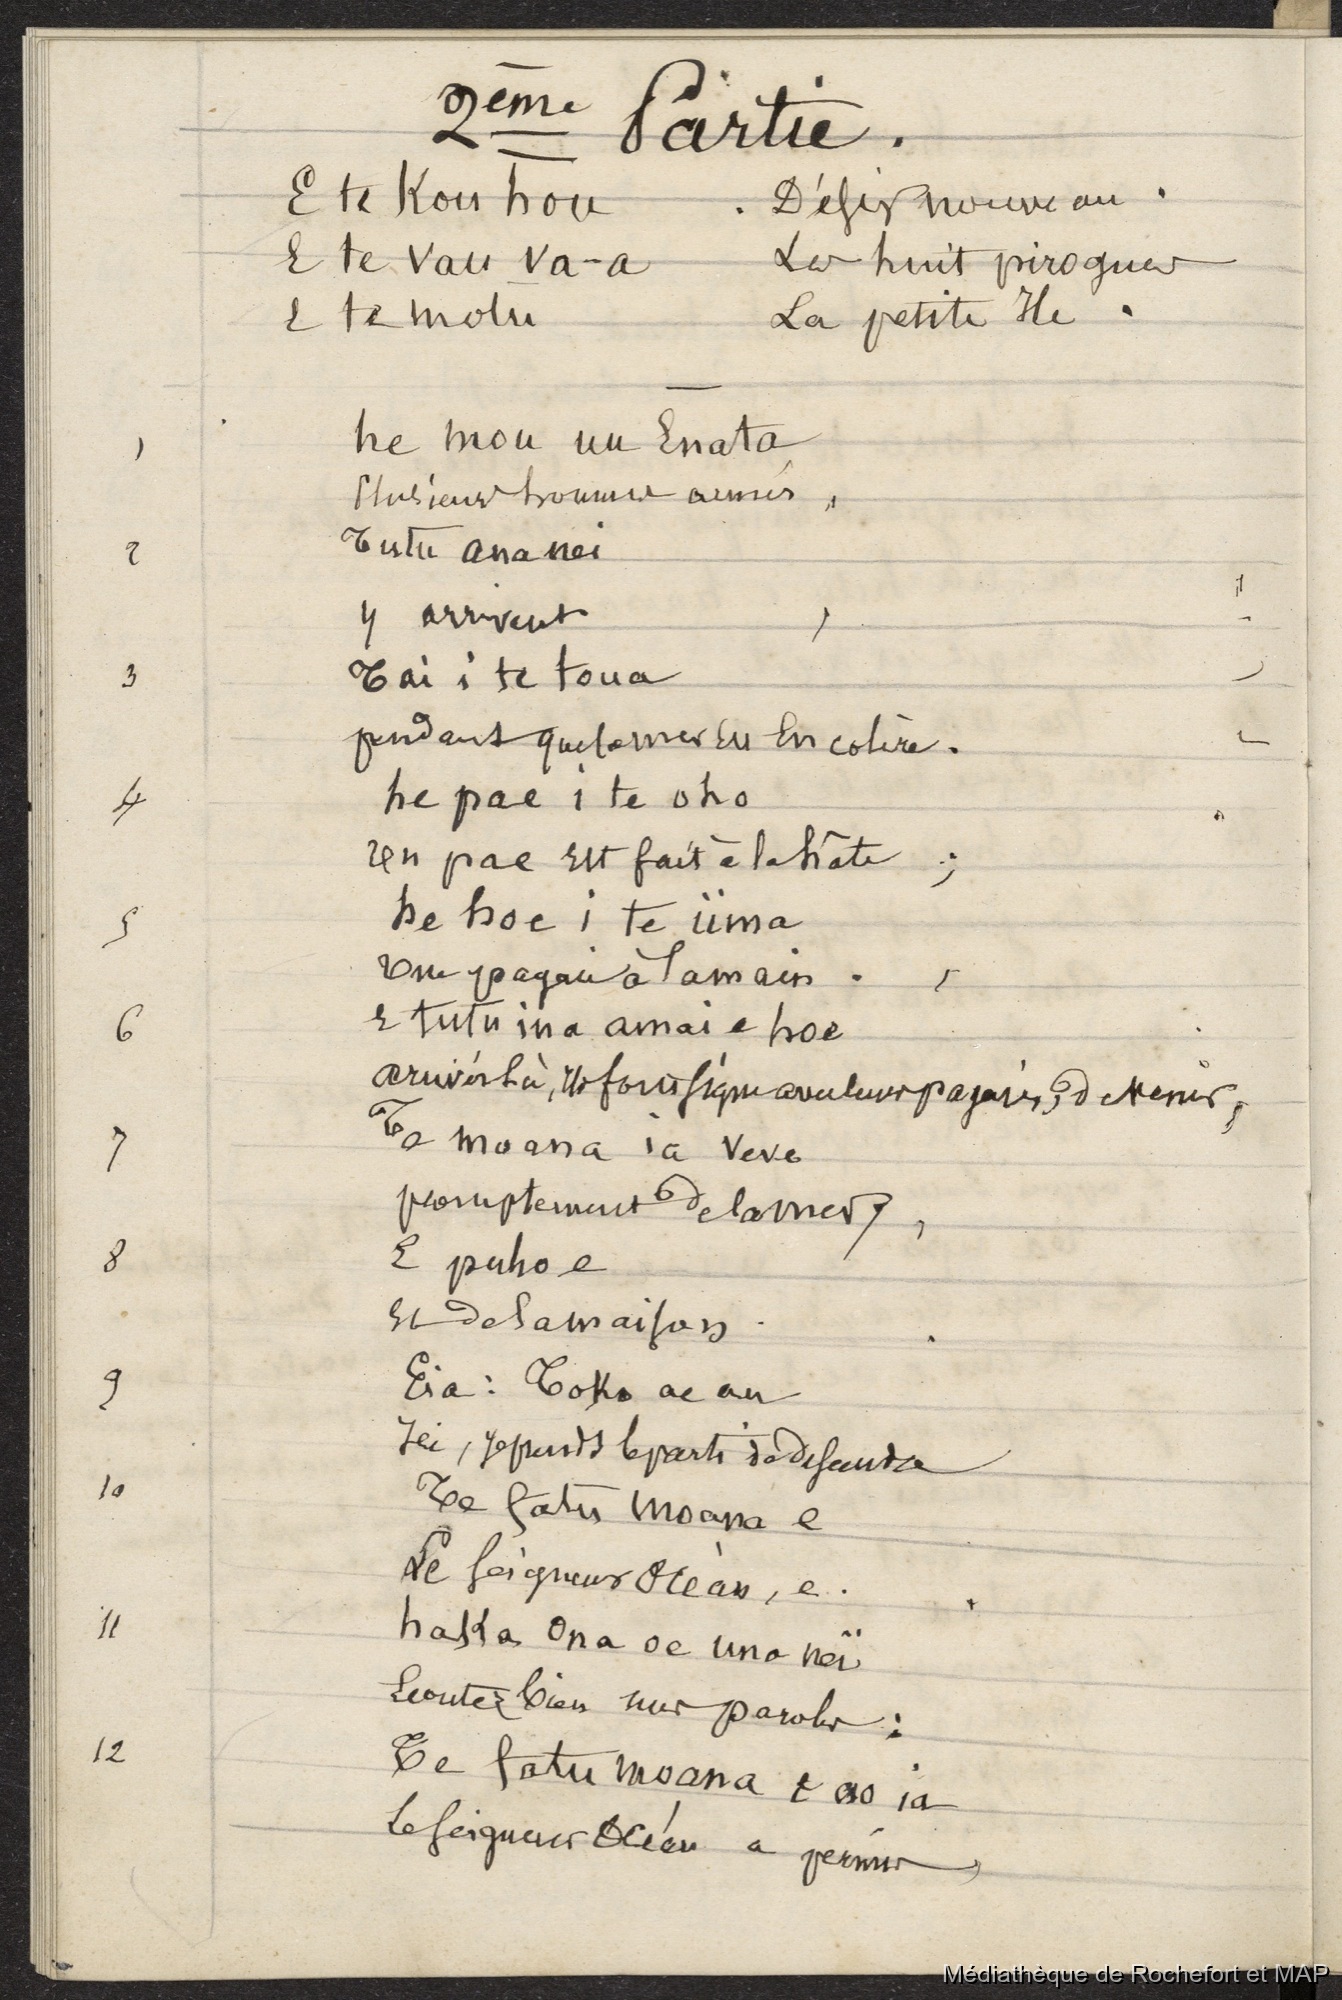 2ème Partie.
E te Kou hou . Désir nouveau .
E te Vau va-a Les huit pirogues
E te motu La petite Ile .
1 he mou uu Enata
Plusieurs hommes armés,
2 Tutu ana nei
y arrivent ,
3 Tai i te toua
pendant que la mer Est En colère.
4 he pae i te oho
un pae Est fait à la hâte ;
5 he hoe i te iima
une pagaie à la main . ,
6 E tutu ina amai e hoe
arrivés là, Ils font signe avec leurs pagaies, de venir,
7 Te moana ia veve
promptement de la mer,
8 E puho e
Et de la maison .
9 Eia : Toko ae au
Ici, je prends le parti de descendre
10 Te fatu moana e
Le Seigneur Océan, e .
11 haka ona oe una neï
Ecoutez bien mes paroles :
12 Te fatu moana e ao ia
Le Seigneur Océan a permis,
Médiathèque de Rochefort et MAP